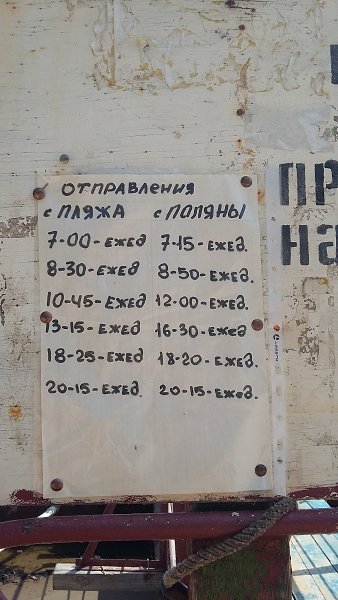 ОТПРАВЛЕНИЯ
с ПЛЯЖА с ПОЛЯНЫ
7-00-ЕЖЕД 7-15-ЕЖЕД.
8-30-ЕЖЕД 8-50-ЕЖЕД.
10-45-ЕЖЕД 12-00-ЕЖЕД.
13-15-ЕЖЕД 16-30-ЕЖЕД
18-25-ЕЖЕД 18-20-ЕЖЕД.
20-15-ЕЖЕД. 20-15-ЕЖЕД.
ПР
на